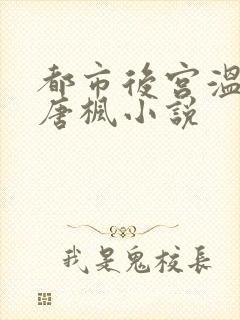 都市後宮溫
唐楓小說
我是鬼校長